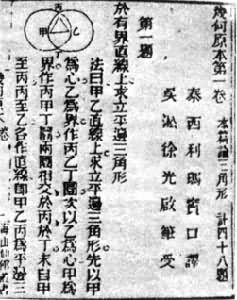 幾何原本第一卷 本篇論三角形 計四十八題
泰西利瑪竇口譯
吳淞徐光啟筆受
第一題
於有界直線上求立平邊三角形
法曰甲乙直線上求立平邊三角形先以甲
為心乙為界作丙乙丁圜次以乙為心甲為
界作丙甲丁圜兩圜相交於丙於丁末自甲
至丙丙至乙各作直線即甲乙丙為平邊三
丙
甲
乙
丁